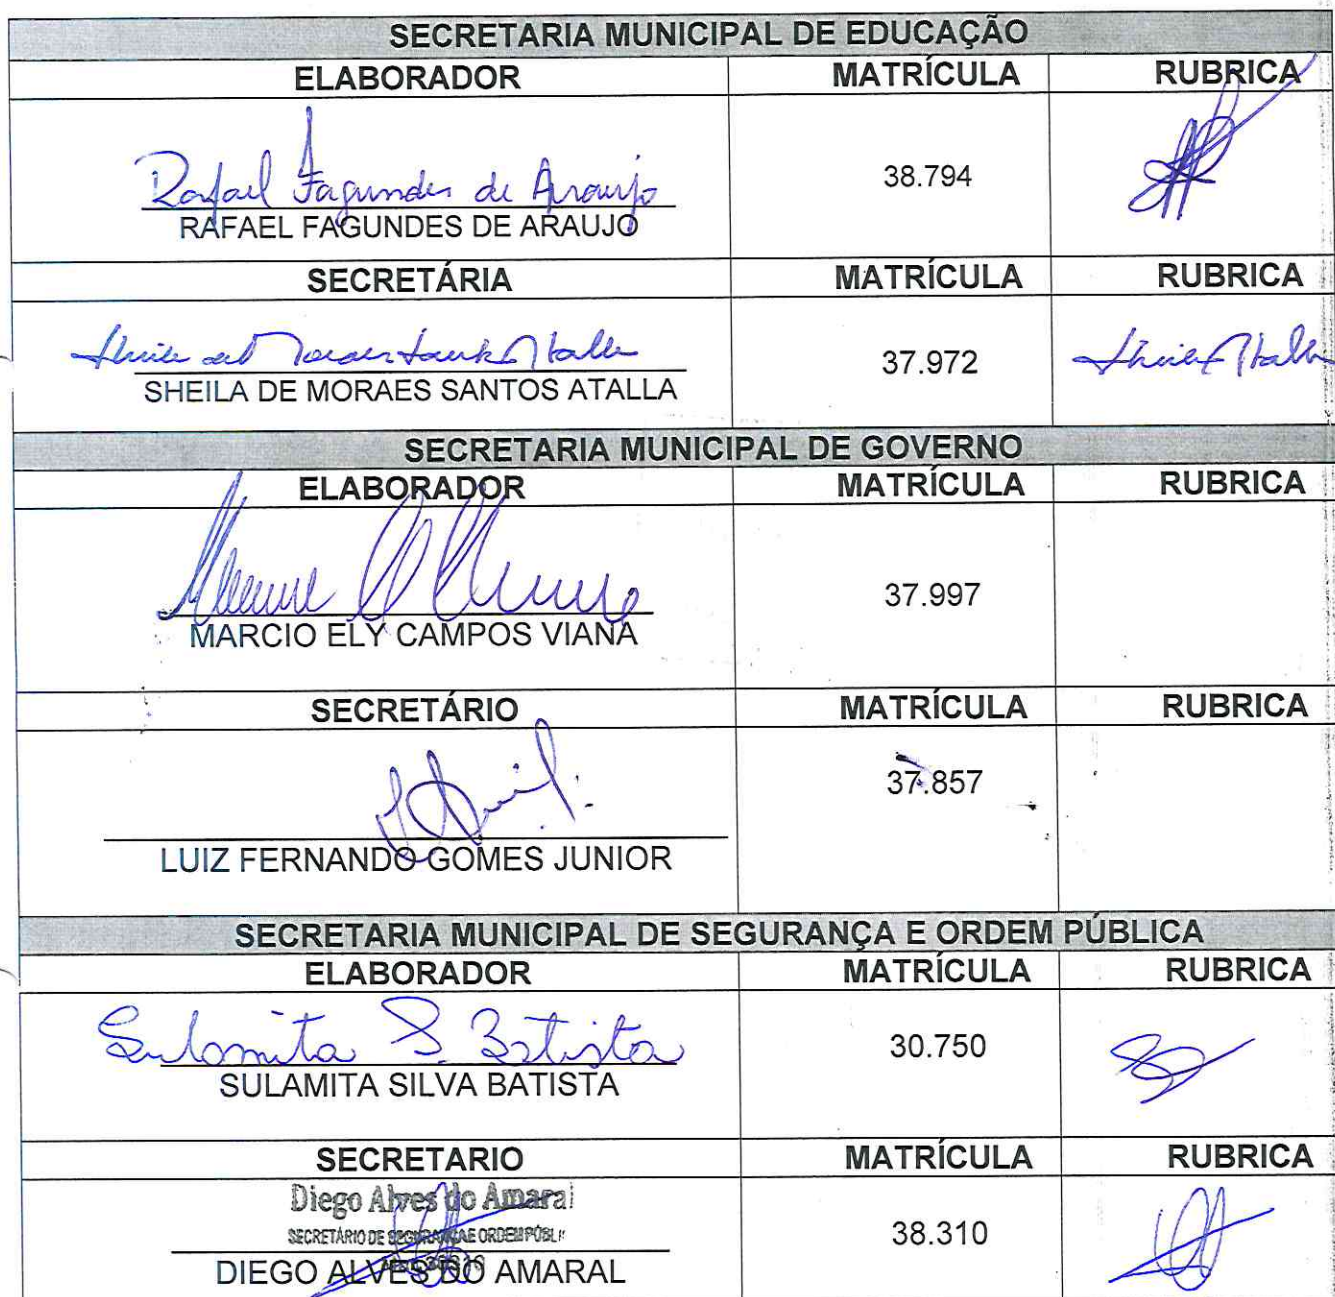 SECRETARIA MUNICIPAL DE EDUCAÇÃO
ELABORADOR MATRÍCULA RUBRICA
Rafael Fagundes de Araujo
38.794
RAFAEL FAGUNDES DE ARAUJO
SECRETÁRIA MATRÍCULA RUBRICA
37.972
SHEILA DE MORAES SANTOS ATALLA
SECRETARIA MUNICIPAL DE GOVERNO
ELABORADOR MATRÍCULA RUBRICA
37.997
MARCIO ELY CAMPOS VIANA
SECRETÁRIO MATRÍCULA RUBRICA
37.857
LUIZ FERNANDO GOMES JUNIOR
SECRETARIA MUNICIPAL DE SEGURANÇA E ORDEM PÚBLICA
ELABORADOR MATRÍCULA RUBRICA
Sulamita S. Batista
30.750
SULAMITA SILVA BATISTA
SECRETARIO MATRÍCULA RUBRICA
Diego Alves do Amaral
SECRETÁRIO DE SEGURANÇA E ORDEM PÚBLI
38.310
DIEGO ALVES DO AMARAL